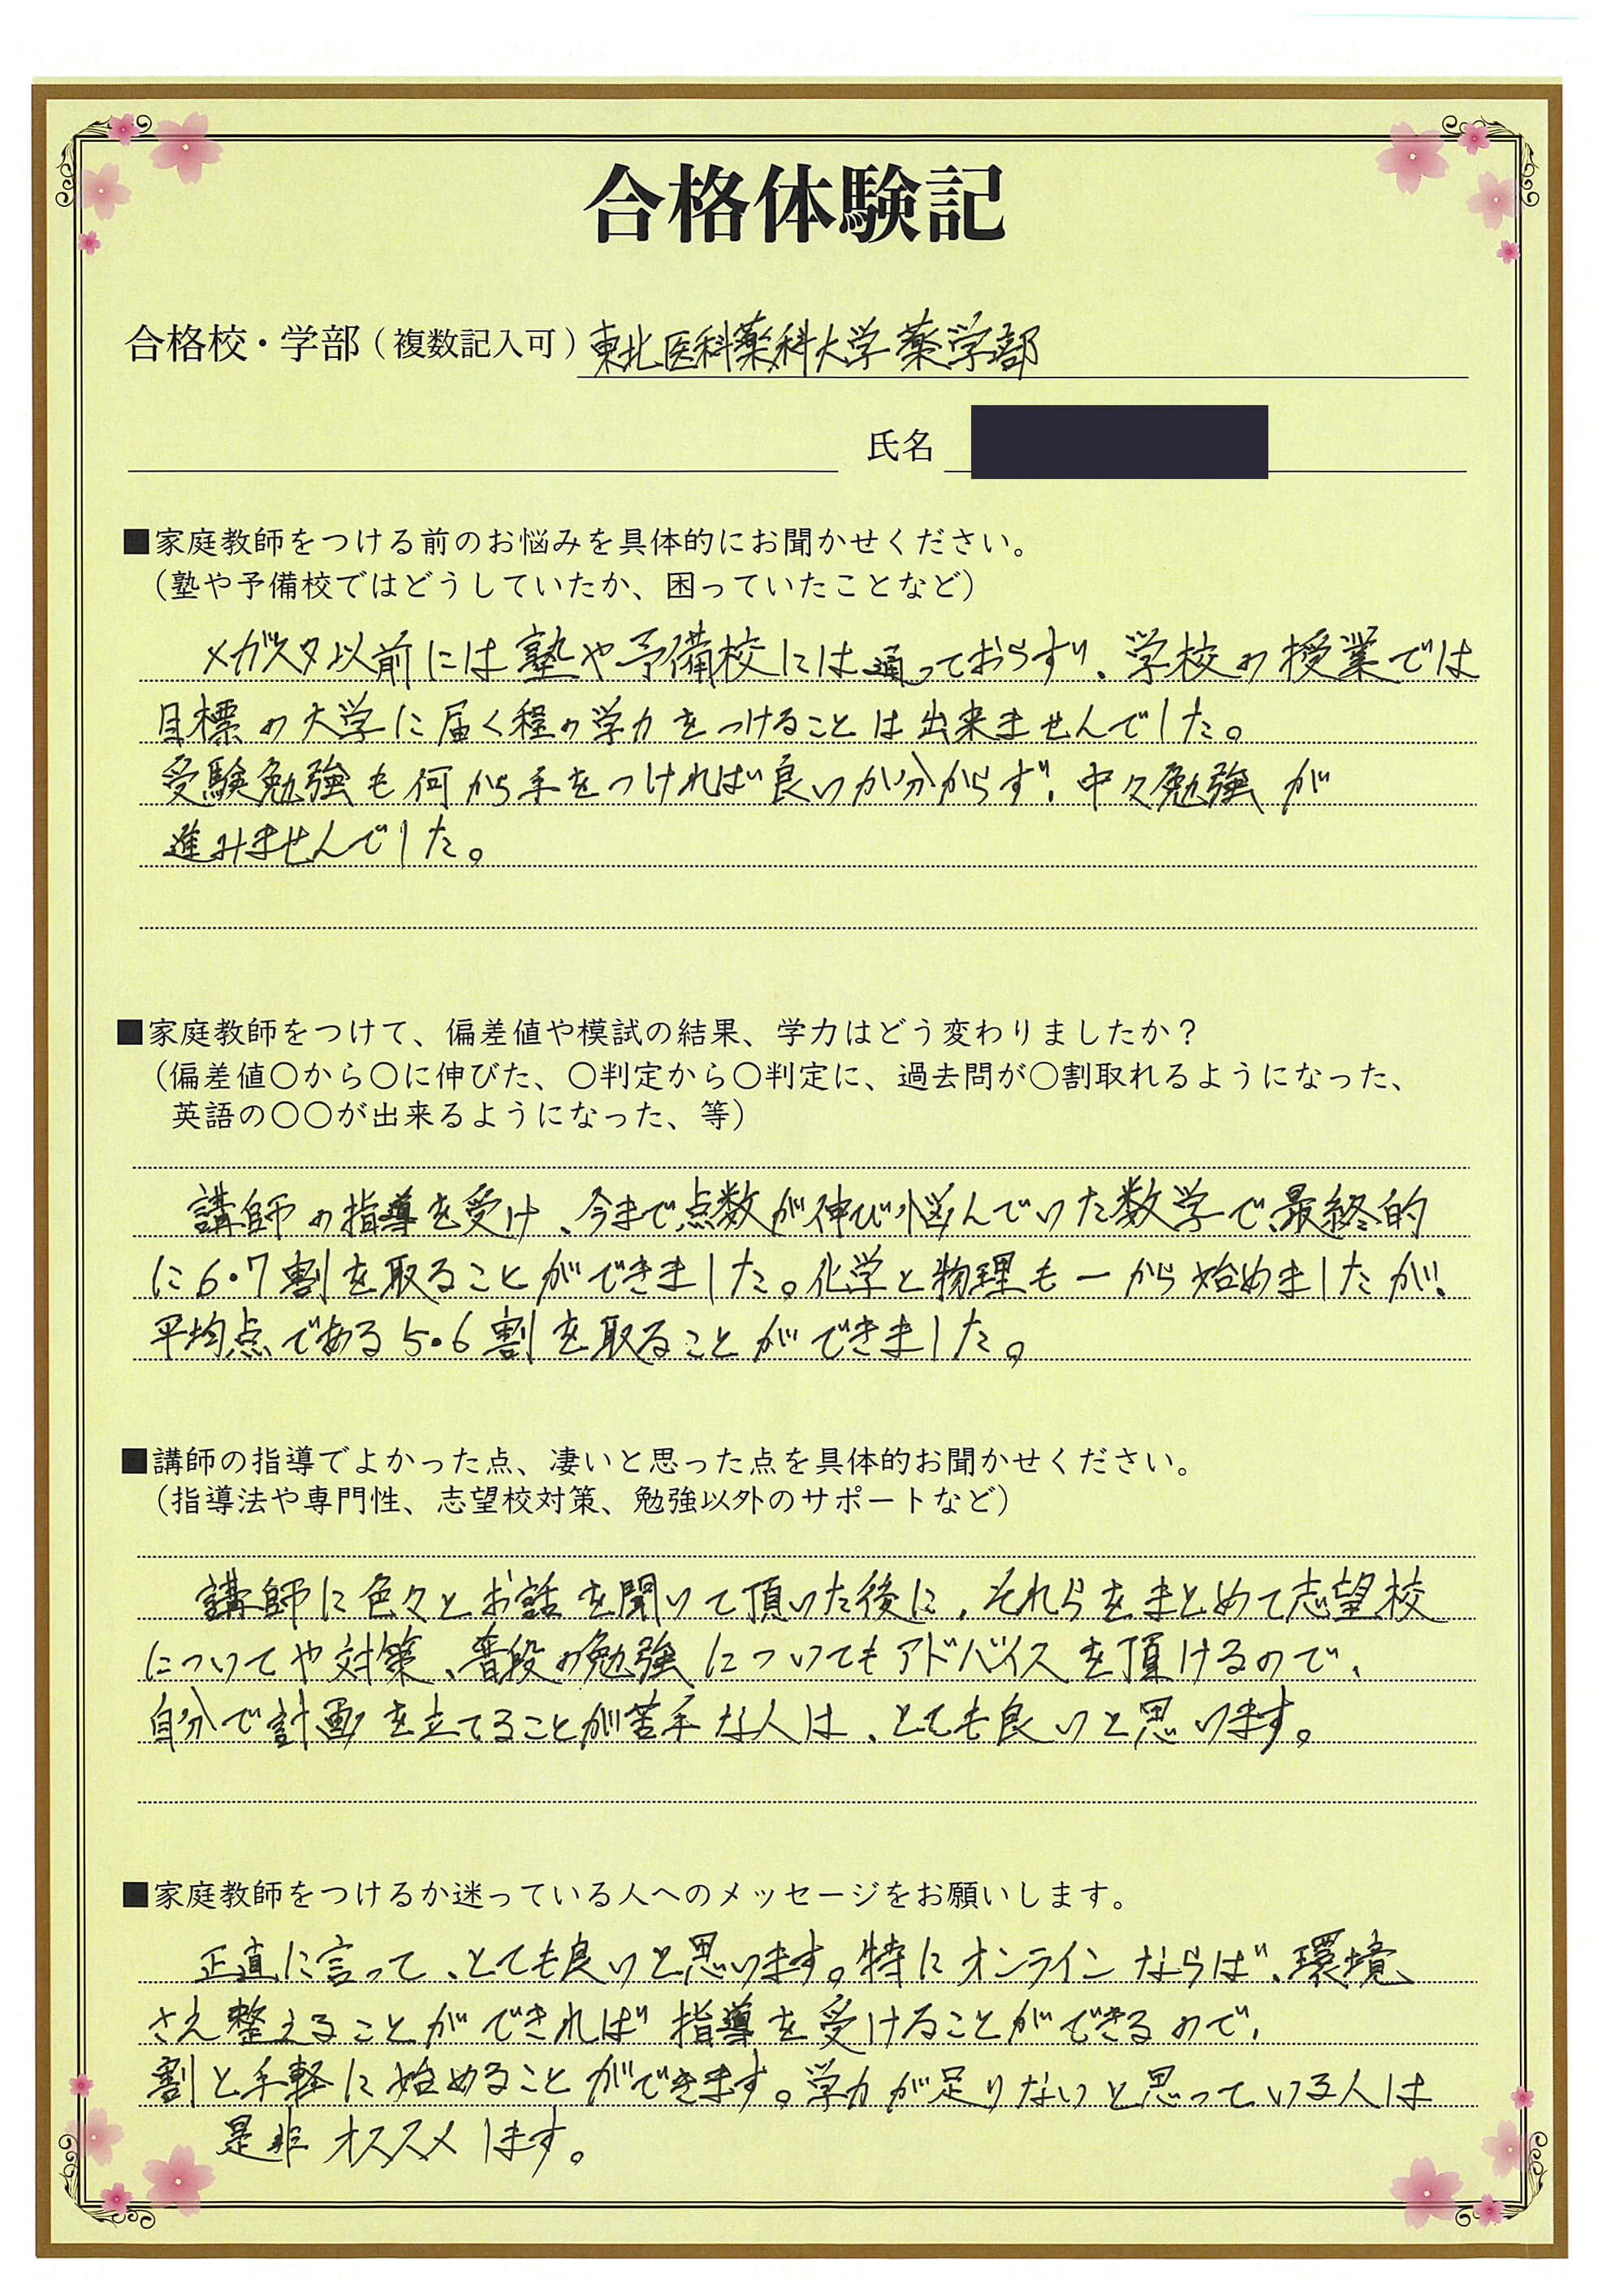 合格体験記
合格校・学部（複数記入可）東北医科薬科大学薬学部
氏名
■家庭教師をつける前のお悩みを具体的にお聞かせください。
（塾や予備校ではどうしていたか、困っていたことなど）
メガスタ以前には塾や予備校には通っておらず、学校の授業では
目標の大学に届く程の学力をつけることは出来ませんでした。
受験勉強も何から手をつければ良いか分からず、中々勉強が
進みませんでした。
■家庭教師をつけて、偏差値や模試の結果、学力はどう変わりましたか？
（偏差値〇から〇に伸びた、〇判定から〇判定に、過去問が〇割取れるようになった、
英語の〇〇が出来るようになった、等）
講師の指導を受け、今まで点数が伸び悩んでいた数学で最終的
に6・7割を取ることができました。化学と物理も一から始めましたが、
平均点である5・6割を取ることができました。
■講師の指導でよかった点、凄いと思った点を具体的お聞かせください。
（指導法や専門性、志望校対策、勉強以外のサポートなど）
講師に色々とお話を聞いて頂いた後に、それらをまとめて志望校
についてや対策、普段の勉強についてもアドバイスを頂けるので、
自分で計画を立てることが苦手な人は、とても良いと思います。
■家庭教師をつけるか迷っている人へのメッセージをお願いします。
正直に言って、とても良いと思います。特にオンラインならば、環境
さえ整えることができれば指導を受けることができるので、
割と手軽に始めることができます。学力が足りないと思っている人は
是非オススメします。